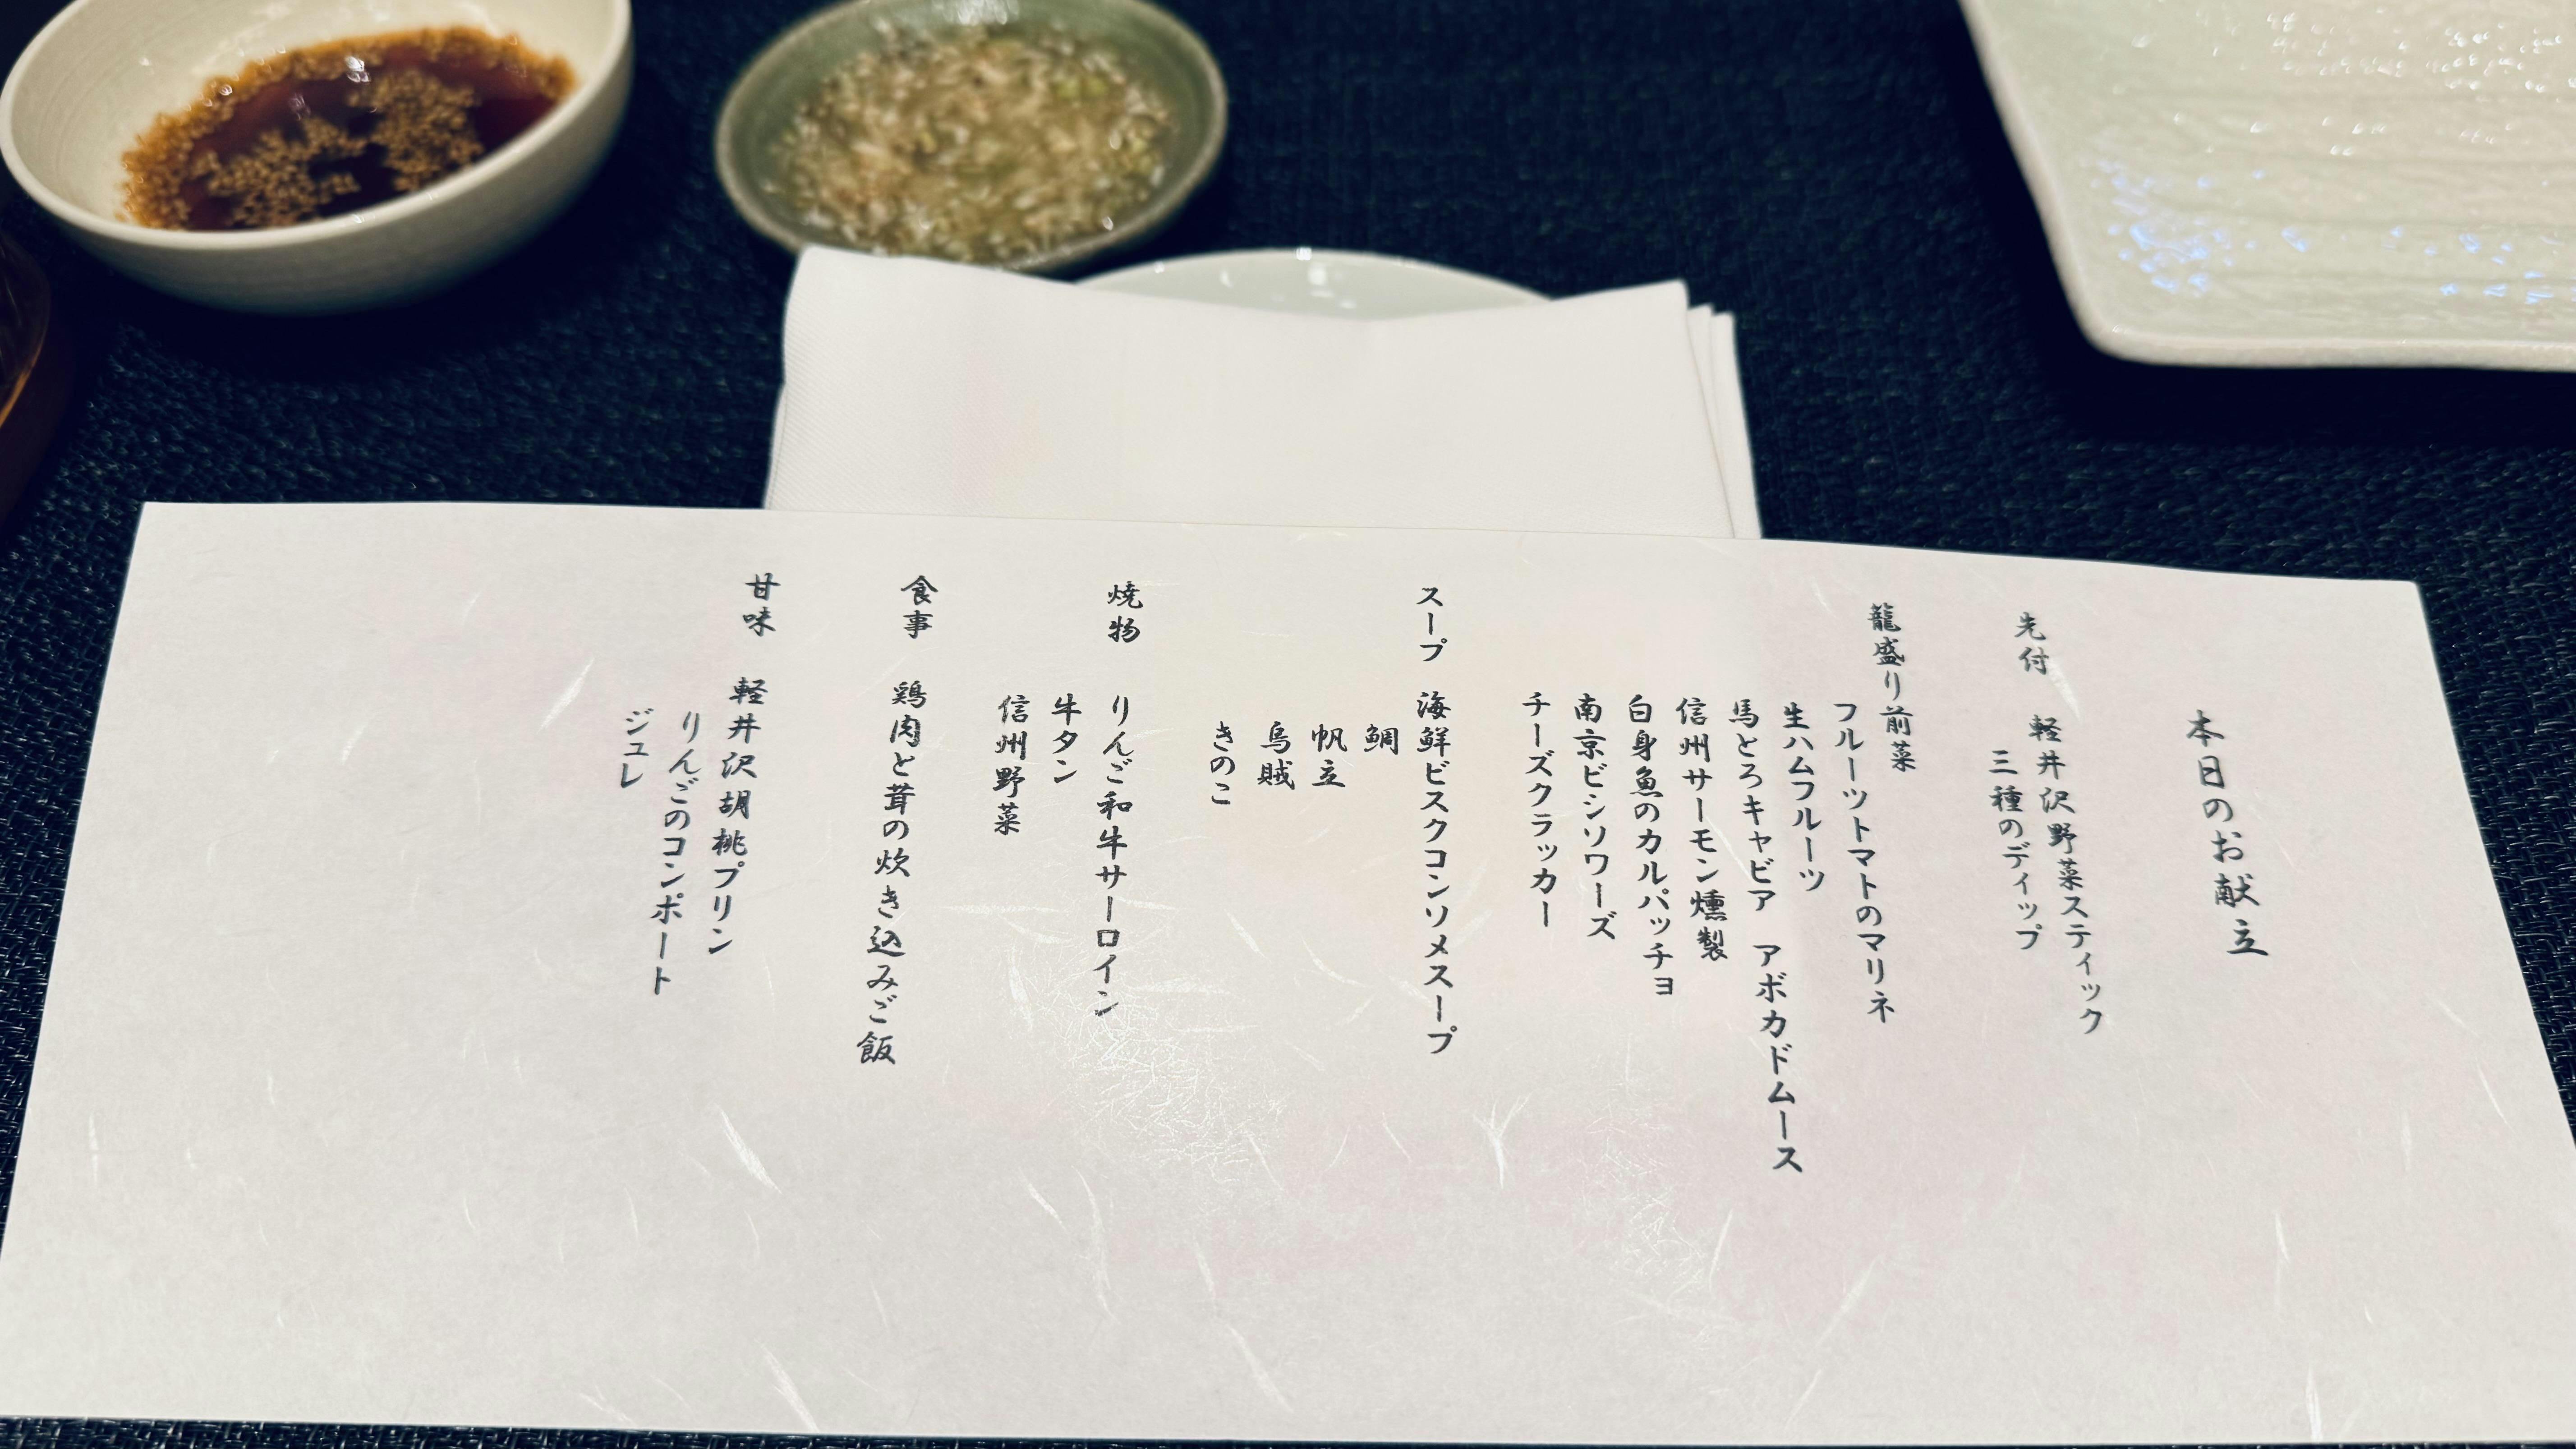 本日のお献立
先付　軽井沢野菜スティック
三種のディップ
籠盛り前菜
フルーツトマトのマリネ
生ハムフルーツ
馬とろキャビア　アボカドムース
信州サーモン燻製
白身魚のカルパッチョ
南京ビシソワーズ
チーズクラッカー
スープ　海鮮ビスクコンソメスープ
鯛
帆立
烏賊
きのこ
焼物　りんご和牛サーロイン
牛タン
信州野菜
食事　鶏肉と茸の炊き込みご飯
甘味　軽井沢胡桃プリン
りんごのコンポート
ジュレ